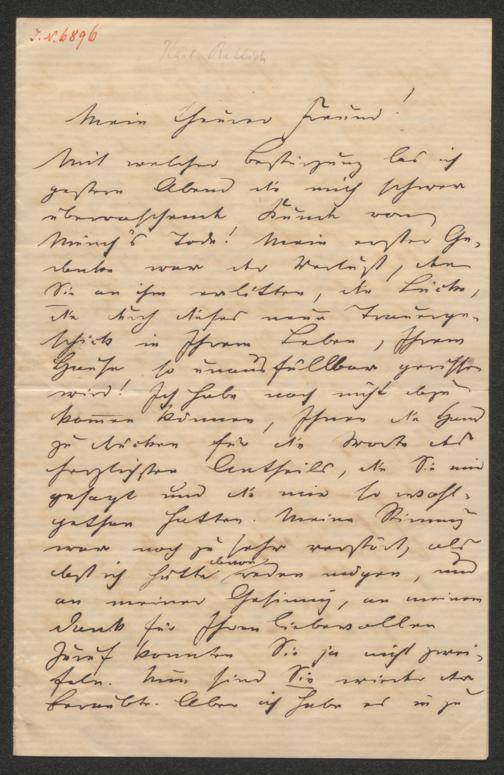 J.N. 6896
Mein theurer Freund!
Mit welcher Bestürzung las ich
gestern Abend die mich schwer
überraschende Kunde von
Münch's Tode! Mein erster Ge-
danke war der Verlust, den
Sie an ihm erlitten, die Lücke,
die durch dieses neue Trauerge-
schick in Ihrem Leben, Ihrem
Hause so unausfüllbar gerissen
wird! Ich habe noch nicht dazu
kommen können, Ihnen die Hand
zu drücken für die Worte des
herzlichsten Antheils, die Sie mir
gesagt und die mir so wohl-
gethan hatten. Meine Stimmung
war noch zu sehr verstört, als
daß ich hätte davon reden mögen, und
an meiner Gesinnung, an meinem
Dank für Ihren liebevollen
Zuruf konnten Sie ja nicht zwei-
feln. Nun sind Sie wieder der
Beraubte. Aber ich habe es in zu